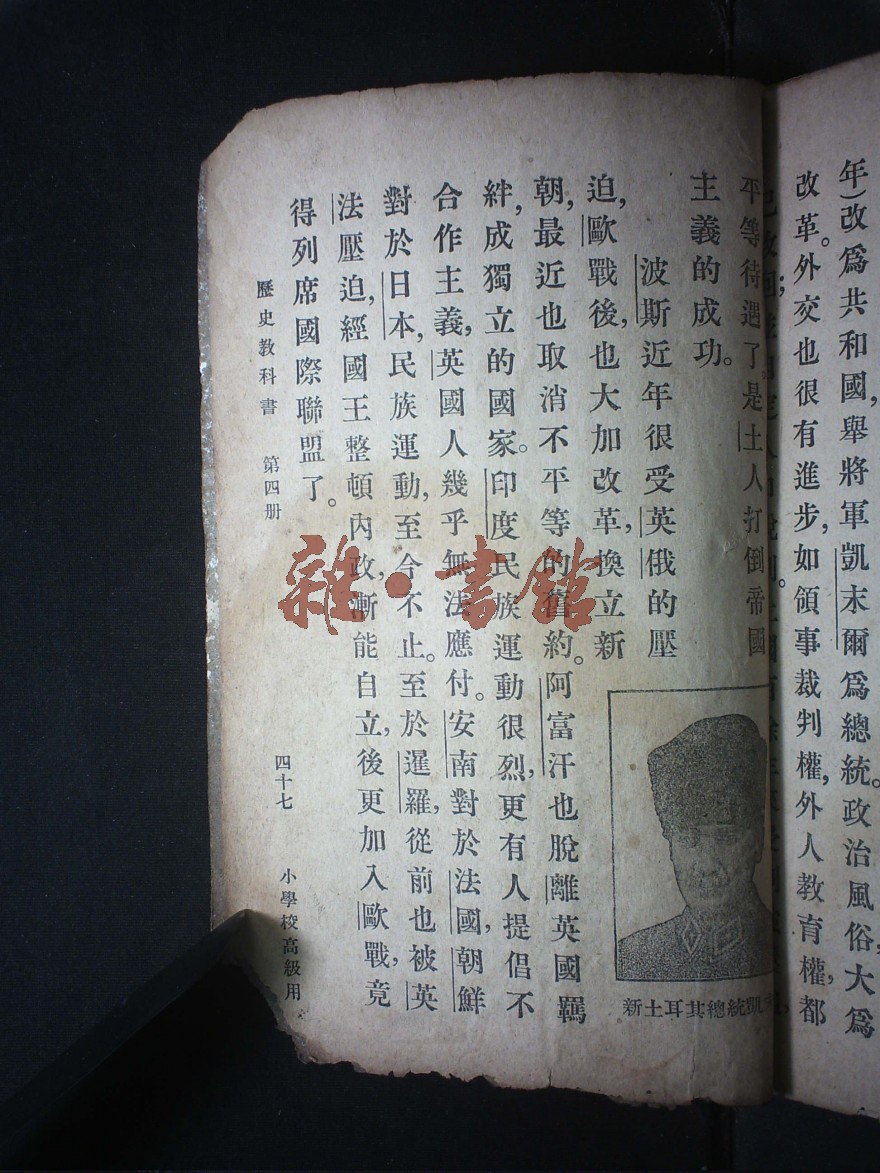 年)改爲共和國,舉將軍凱末爾爲總統。政治風俗,大爲
改革。外交也很有進步,如領事裁判權,外人教育權,都
平等待遇了。是土人打倒帝國
主義的成功。
波斯近年很受英俄的壓
迫,歐戰後,也大加改革,換立新
朝,最近也取消不平等的舊約。阿富汗也脫離英國羈
絆,成獨立的國家。印度民族運動很烈,更有人提倡不
合作主義,英國人幾乎無法應付。安南對於法國,朝鮮
對於日本,民族運動,至今不止。至於暹羅,從前也被英
法壓迫,經國王整頓內政,漸能自立,後更加入歐戰,竟
得列席國際聯盟了。
新土耳其總統凱
歷史教科書 第四册 四十七 小學校高級用
雜·書館